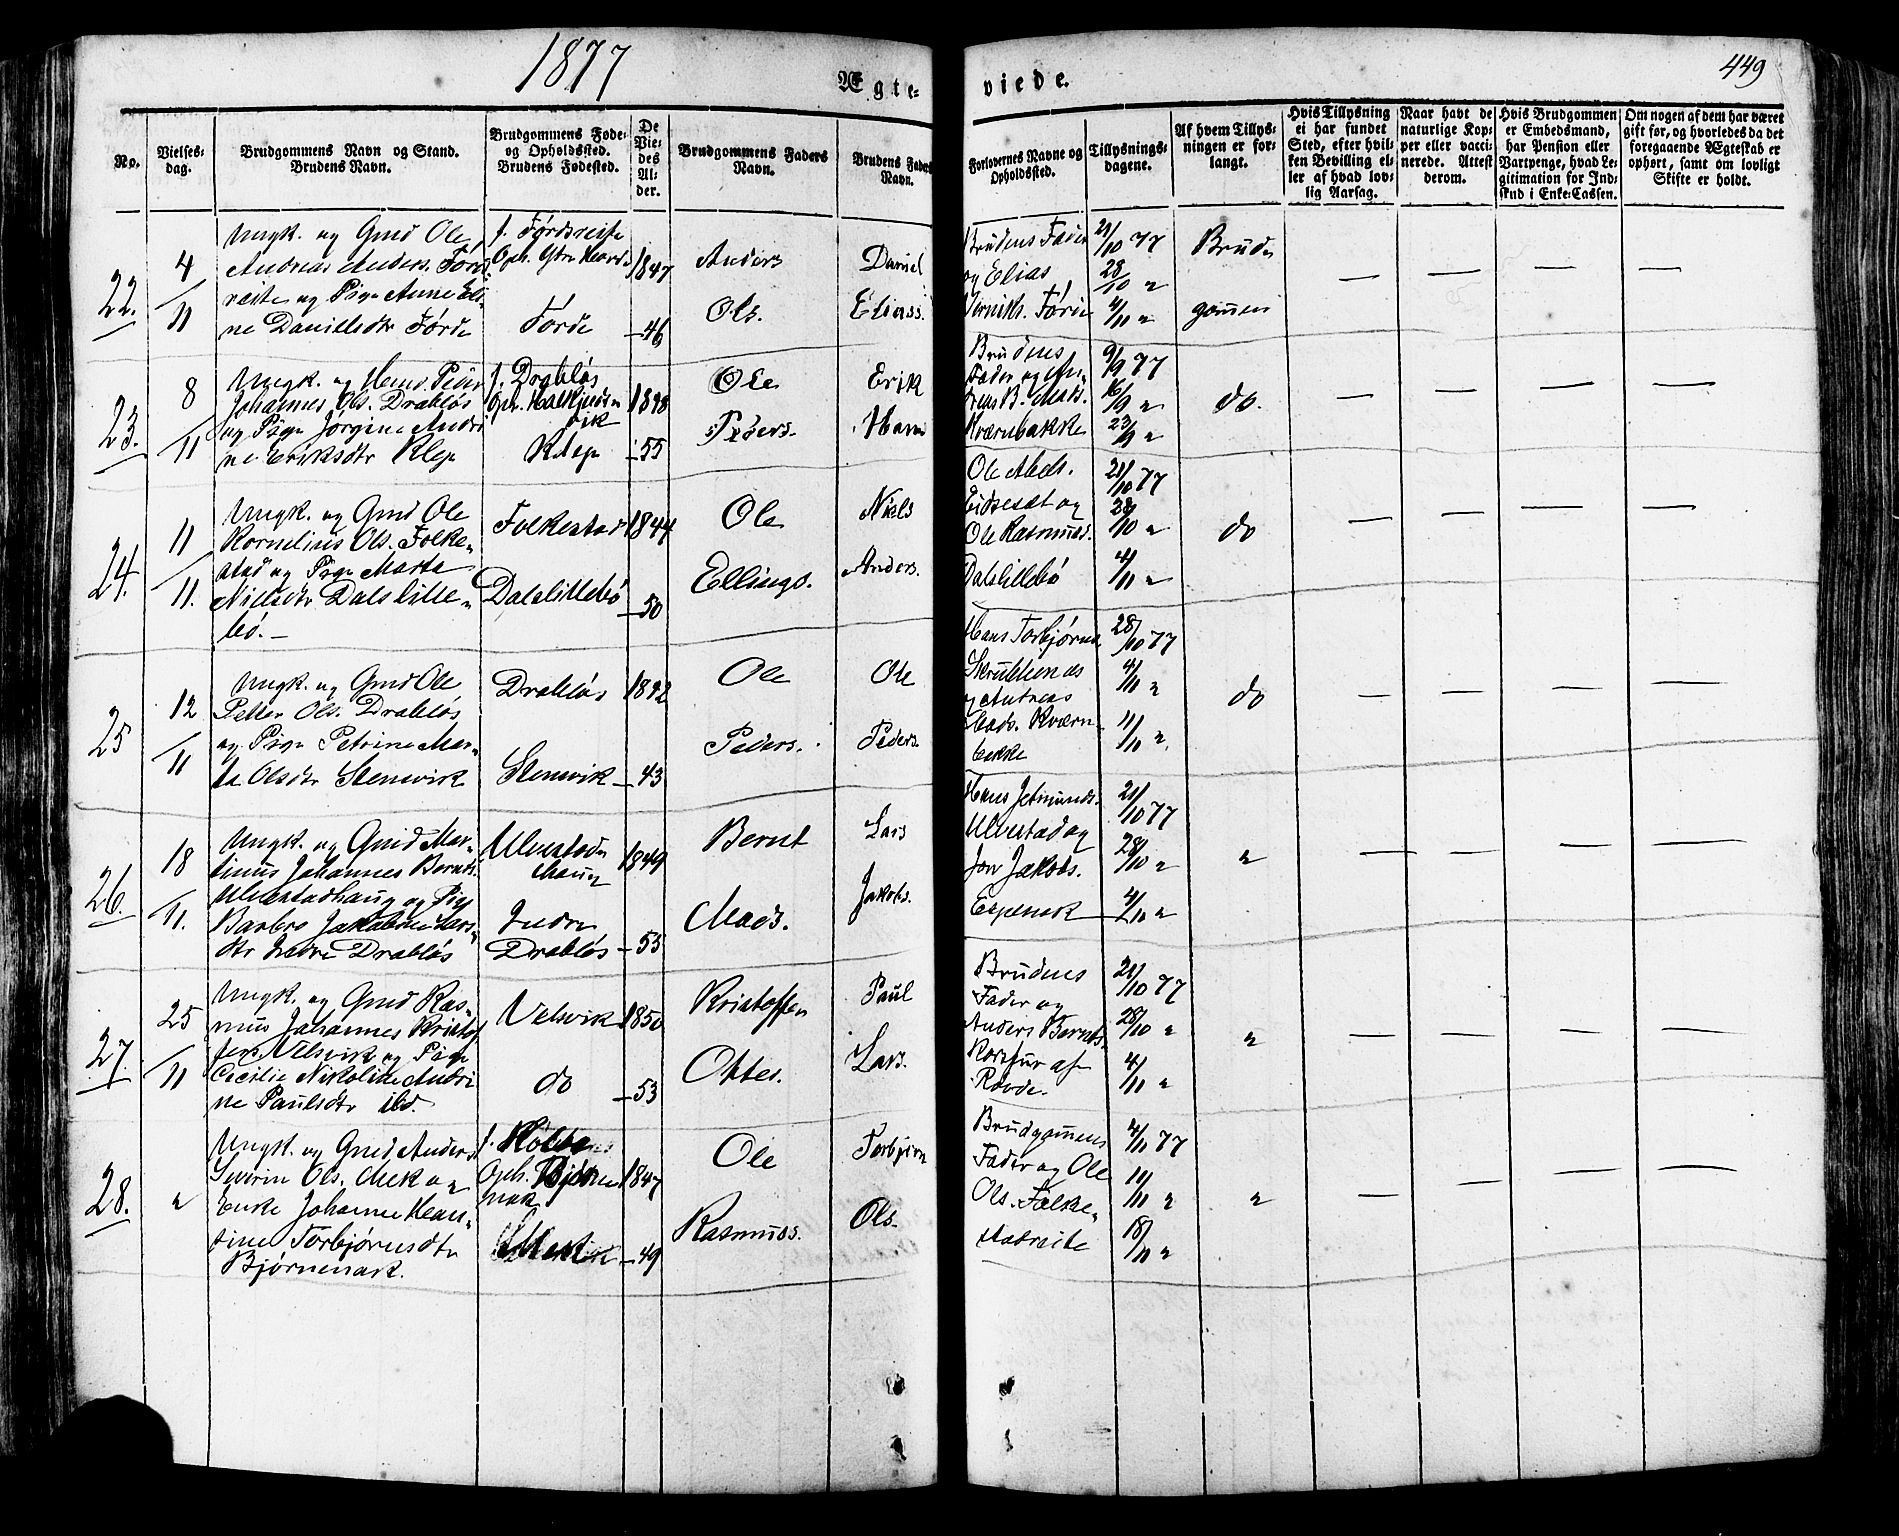 1877
449
Ægte-
viede.
No.
Vielses-
dag.
Brudgommens Navn og Stand.
Brudens Navn.
Brudgommens Føde-
og Opholdssted.
Brudens Fødested.
De
Vie-
des
Al-
der.
Brudgommens Faders
Navn.
Brudens Faders
Navn.
Forlovernes Navne og
Opholdssted.
Tillysnings-
dagene.
Af hvem Tillys-
ningen er for-
langt.
Hvis Tillysning
ei har fundet
Sted, efter hvil-
ken Bevilling el-
ler af hvad lov-
lig Aarsag.
Naar havt de
naturlige Kop-
per eller vacci-
nerede. Attest
derom.
Hvis Brudgommen
er Embedsmand,
har Pension eller
Vartpenge, hvad Le-
gitimation for Ind-
skud i Enke-Cassen.
Om nogen af dem har været
gift før, og hvorledes da det
foregaaende Ægteskab er
ophørt, samt om lovligt
Skifte er holdt.
22.
4/11
Ungk. og Gmd Ole
Andreas Anders. Førds
reite og Pige Anne Eli
ne Danielsdtr Førde
f. Førdsreite
Oph.
Førde
1847
-46
Anders
Ols.
Daniel
Eliass.
Brudens Fader
og Elias
Førde
21/10 77
28/10 "
4/11 "
Brud
gommen
23.
8/11
Ungk. og Peder
Johannes Ols. Drabløs
og Pige Jørgine Andri
ne Eriksdtr Klep
f. Drabløs
Oph.
vik
Klep
1848
-55
Ole
Peders.
Erik
Hans
Brudens
Fader og An-
dreas B. Mads.
Kværnbakke
9/9 77
16/9 "
23/9 "
do.
24.
11/11.
Ungk. og Gmd Ole
Kornelius Ols. Folke-
stad og Pige Marte
Nielsdtr Dalslille-
bø. -
Folkestad
Dalslillebø
1844
-50
Ole
Ellings.
Niels
Anders.
Ole Abels.
Eidseset og
Ole Rasmuss.
Dalslillebø
21/10 77
28/10 "
4/11 "
do
25
12/11
Ungk. og Gmd Ole
Petter Ols. Drabløs
og Pige Petrine Mar-
ta Olsdtr Stensvik
Drabløs
Stensvik
1842
-43
Ole
Peders.
Ole
Peders.
Hans Torbjørns.
og Andreas
Mads. Kværn-
bakke
28/10 77
4/11 "
11/11 "
do
26.
18/11.
Ungk. og Gmd Mar-
tinus Johannes Bernts.
Ulvestadhaug og Pige
Barbro Jakobine Lars-
dtr Indre Drabløs
Ulvestad-
haug
Indre
Drabløs
1849
-55
Bernt
Mads.
Lars
Jakobs.
Hans Jetmunds.
Ulvestad og
Jon Jakobs.
Espenak
21/10 77
28/10 "
4/11 "
"
27.
25/11
Ungk. og Gmd Ras-
mus Johannes Kristof
fers. Velsvik og Pige
Cecilie Nikoline Andri
ne Paulsdtr ibd.
Velsvik
do
1850
-53
Kristoffer
Ottes.
Paul
Lars.
Brudens
Fader og
Anders Bernts.
Rovde.
21/10 77
28/10 "
4/11 "
"
28.
"
Ungk. og Gmd Anders
Severin Ols. Mek og
Enke Johanne Han-
sine Torbjørnsdtr
Bjørnenak.
f.
Oph. Bjørne
nak
1847
-49
Ole
Rasmuss.
Torbjørn
Ols.
Brudgommens
Fader og Ole
Ols. Folke-
stadreite
4/11 77
11/11 "
18/11 "
"